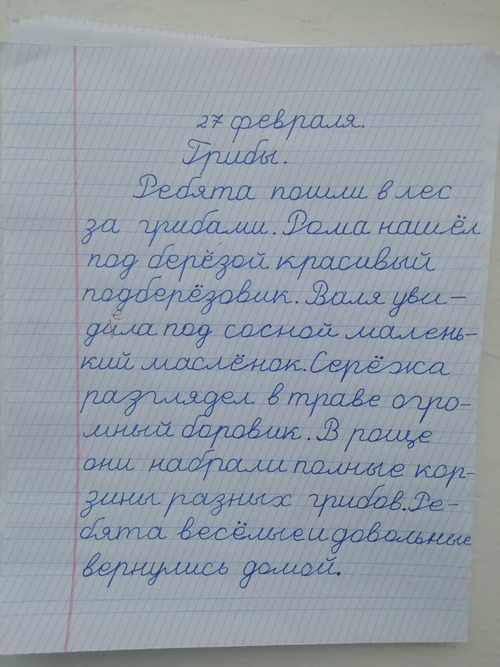 27 февраля.
Грибы.
Ребята пошли в лес
за грибами. Рома нашёл
под берёзой красивый
подберёзовик. Валя уви-
дела под сосной малень-
кий маслёнок. Серёжа
разглядел в траве огро-
мный боровик. В роще
они набрали полные кор-
зины разных грибов. Ре-
бята весёлые и довольные
вернулись домой.